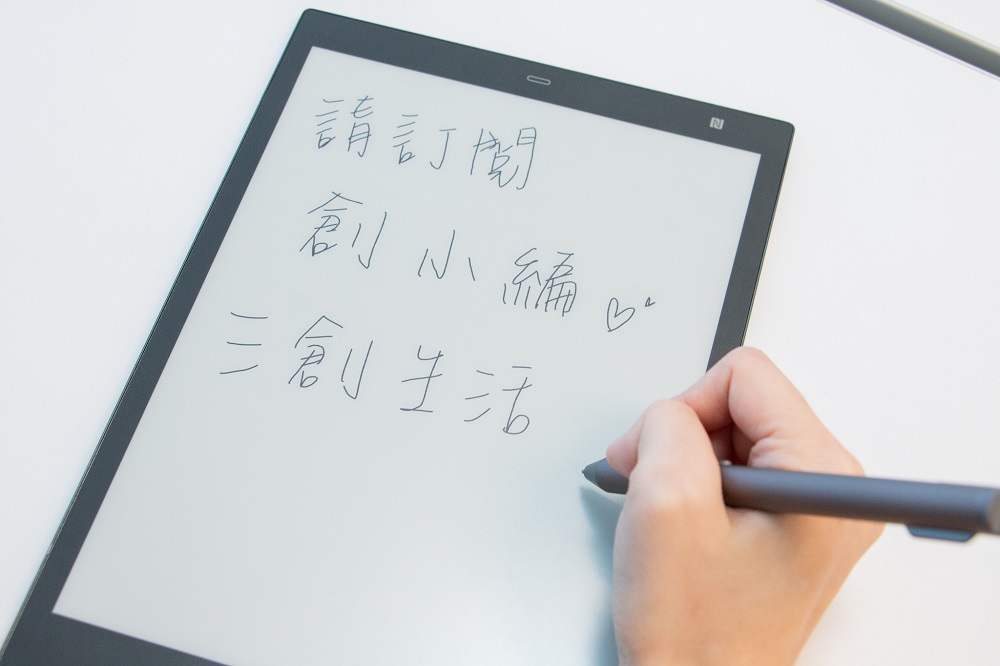 請訂閱
創小編♡
三創生活